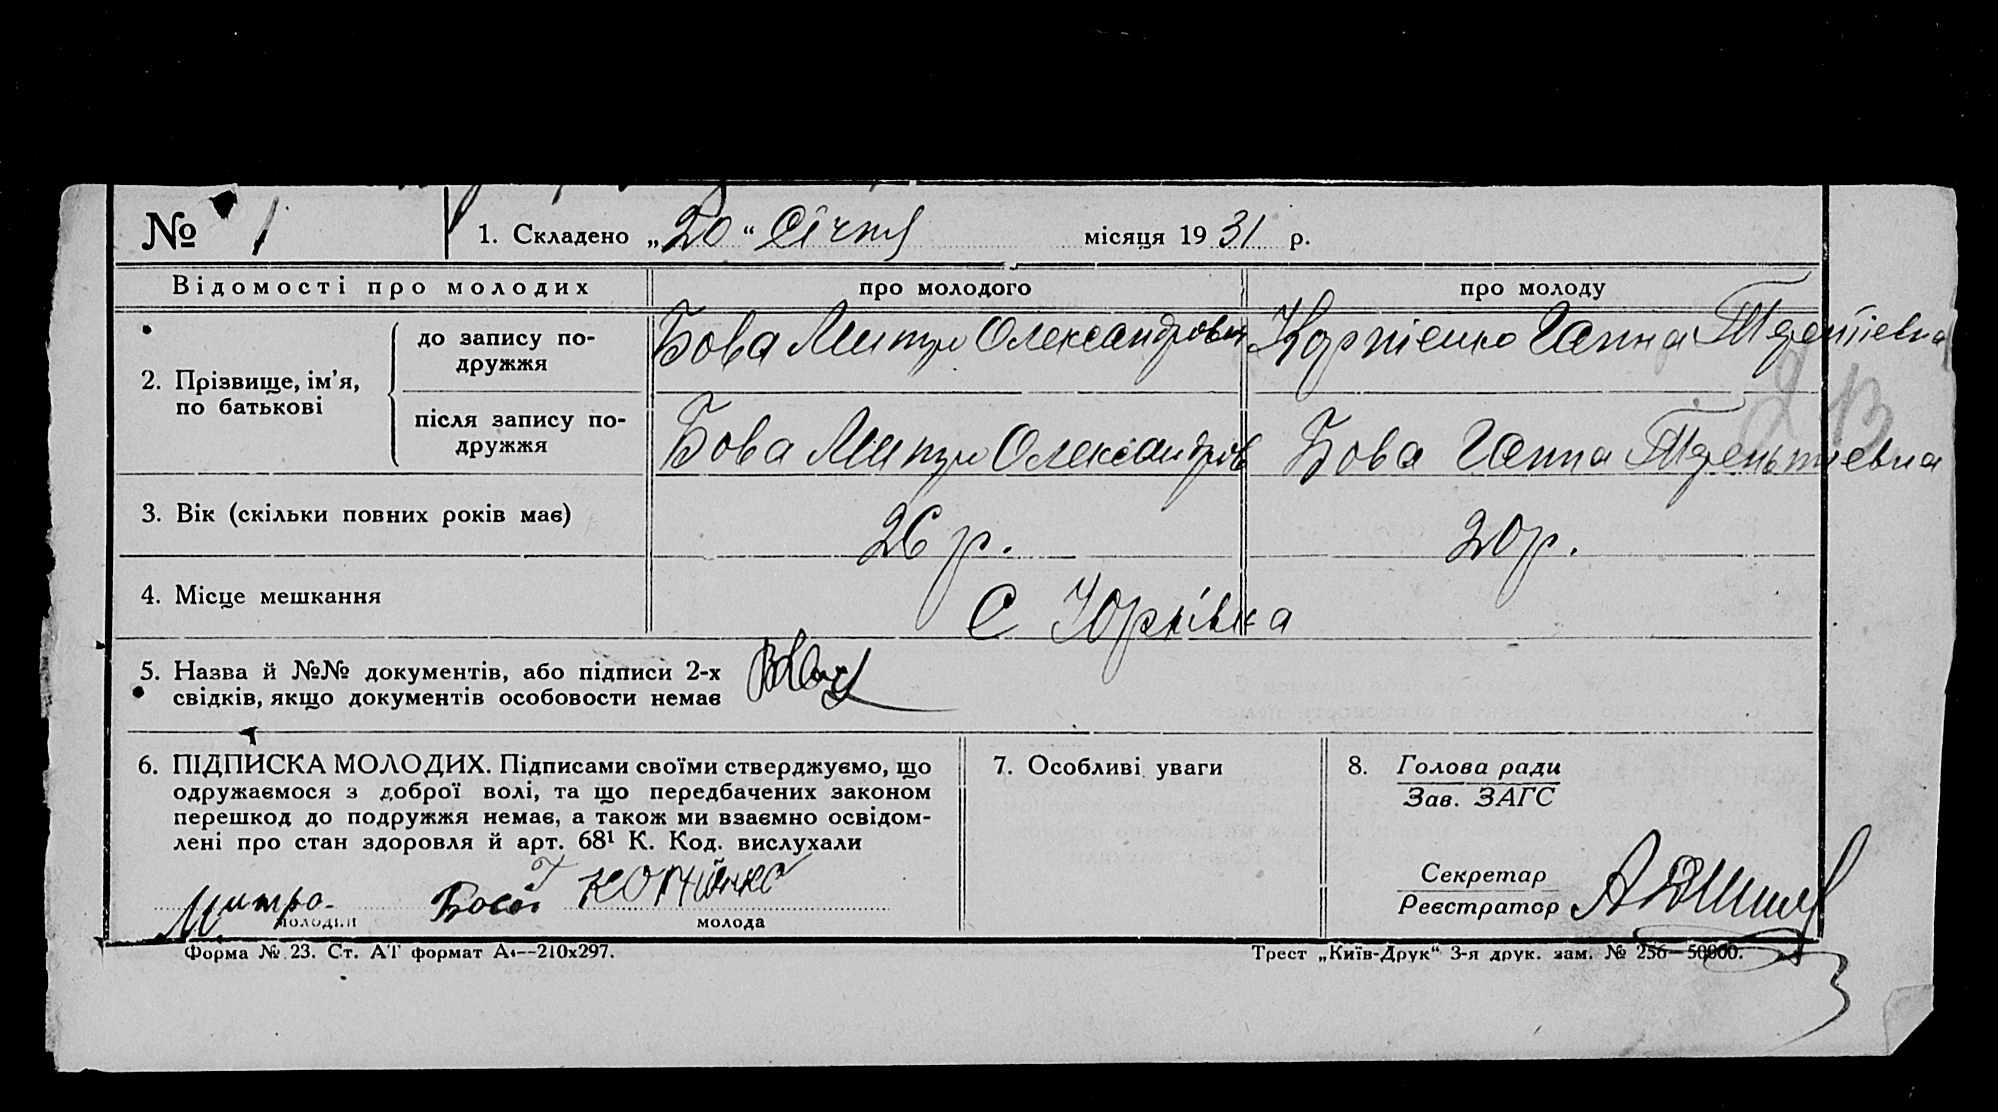 № 1 1. Складено „20“ Січня місяця 1931 р.
Відомості про молодих про молодого про молоду
2. Прізвище, ім’я, по батькові
до запису подружжя Бова Митро Олександрович Корнієнко Ганна
після запису подружжя Бова Митро Олександров Бова Ганна Терентиевна
3. Вік (скільки повних років має) 26 р. 20 р.
4. Місце мешкання С Юрківка
5. Назва й №№ документів, або підписи 2-х
свідків, якщо документів особовости немає
6. ПІДПИСКА МОЛОДИХ. Підписами своїми стверджуємо, що
одружаємося з доброї волі, та що передбачених законом
перешкод до подружжя немає, а також ми взаємно освідом-
лені про стан здоровля й арт. 68¹ К. Код. вислухали
Митро
молодий молода
7. Особливі уваги
8. Голова ради
Зав. ЗАГС
Секретар
Реєстратор
Форма № 23. Ст. АТ формат А4—210х297. Трест „Київ-Друк“ 3-я друк. зам. № 256—50000.